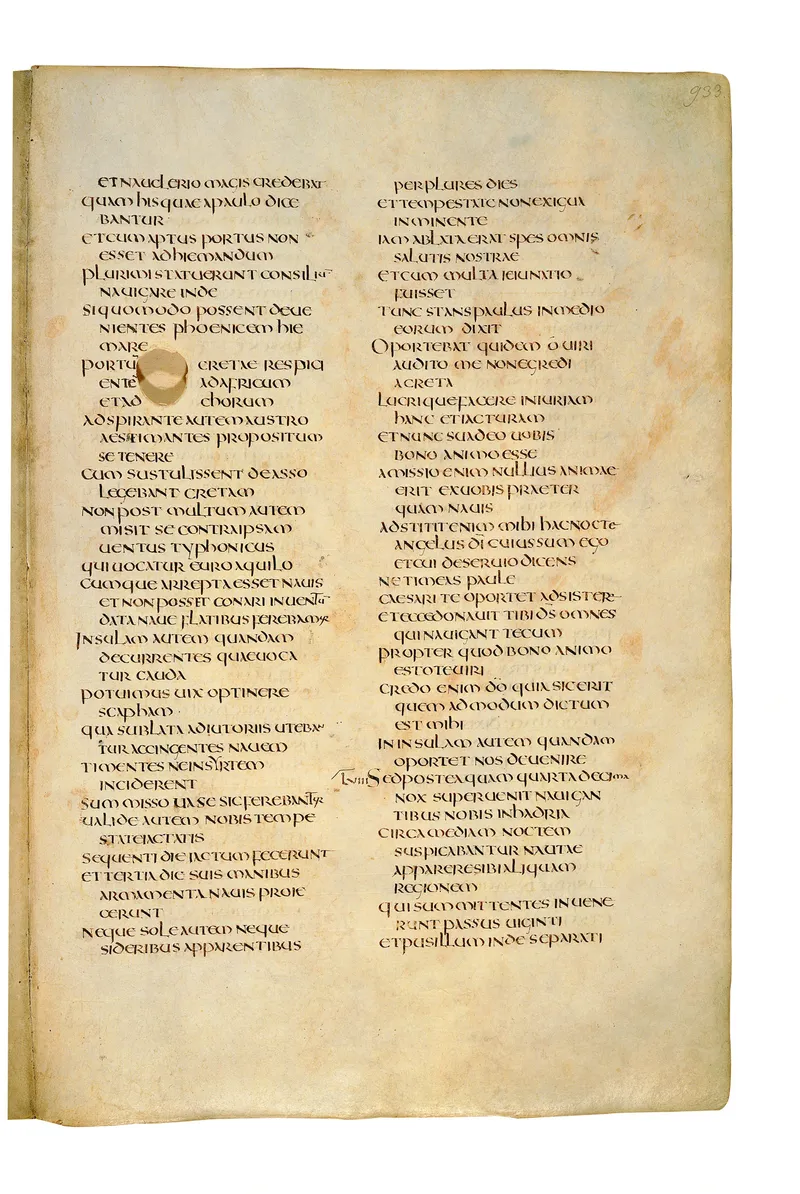 933
ET NAUCLERIO MAGIS CREDEBAT
QUAM HIS QUAE A PAULO DICE
BANTUR
ET CUM APTUS PORTUS NON
ESSET AD HIEMANDUM
PLURIMI STATUERUNT CONSILIU
NAUIGARE INDE
SI QUOMODO POSSENT DEUE
NIENTES PHOENICEM HIE
MARE
PORTU CRETAE RESPICI
ENTE AD AFRICUM
ET AD CHORUM
ADSPIRANTE AUTEM AUSTRO
AESTIMANTES PROPOSITUM
SE TENERE
CUM SUSTULISSENT DE ASSO
LEGEBANT CRETAM
NON POST MULTUM AUTEM
MISIT SE CONTRA IPSAM
UENTUS TYPHONICUS
QUI UOCATUR EUROAQUILO
CUMQUE ARREPTA ESSET NAUIS
ET NON POSSET CONARI IN UENTU
DATA NAUE FLATIBUS FEREBAMUR
INSULAM AUTEM QUANDAM
DECURRENTES QUAE UOCA
TUR CAUDA
POTUIMUS UIX OPTINERE
SCAPHAM
QUA SUBLATA ADIUTORIIS UTEBAN
TUR ACCINGENTES NAUEM
TIMENTES NE IN SYRTEM
INCIDERENT
SUMMISSO UASE SIC FEREBANTUR
UALIDE AUTEM NOBIS TEMPE
STATE IACTATIS
SEQUENTI DIE IACTUM FECERUNT
ET TERTIA DIE SUIS MANIBUS
ARMAMENTA NAUIS PROIE
CERUNT
NEQUE SOLE AUTEM NEQUE
SIDERIBUS APPARENTIBUS
PER PLURES DIES
ET TEMPESTATE NON EXIGUA
INMINENTE
IAM ABLATA ERAT SPES OMNIS
SALUTIS NOSTRAE
ET CUM MULTA IEIUNATIO
FUISSET
TUNC STANS PAULUS IN MEDIO
EORUM DIXIT
OPORTEBAT QUIDEM O UIRI
AUDITO ME NON EGREDI
A CRETA
LUCRIQUE FACERE INIURIAM
HANC ET IACTURAM
ET NUNC SUADEO UOBIS
BONO ANIMO ESSE
AMISSIO ENIM NULLIUS ANIMAE
ERIT EX UOBIS PRAETER
QUAM NAUIS
ADSTITIT ENIM MIHI HAC NOCTE
ANGELUS DĪ CUIUS SUM EGO
ET CUI DESERUIO DICENS
NE TIMEAS PAULE
CAESARI TE OPORTET ADSISTERE
ET ECCE DONAUIT TIBI DS OMNES
QUI NAUIGANT TECUM
PROPTER QUOD BONO ANIMO
ESTOTE UIRI
CREDO ENIM DŌ QUIA SIC ERIT
QUEM AD MODUM DICTUM
EST MIHI
IN INSULAM AUTEM QUANDAM
OPORTET NOS DEUENIRE
SED POSTEAQUAM QUARTA DECIMA
NOX SUPERUENIT NAUIGAN
TIBUS NOBIS IN HADRIA
CIRCA MEDIAM NOCTEM
SUSPICABANTUR NAUTAE
APPARERE SIBI ALIQUAM
REGIONEM
QUI SUMMITTENTES INUENE
RUNT PASSUS UIGINTI
ET PUSILLUM INDE SEPARATI